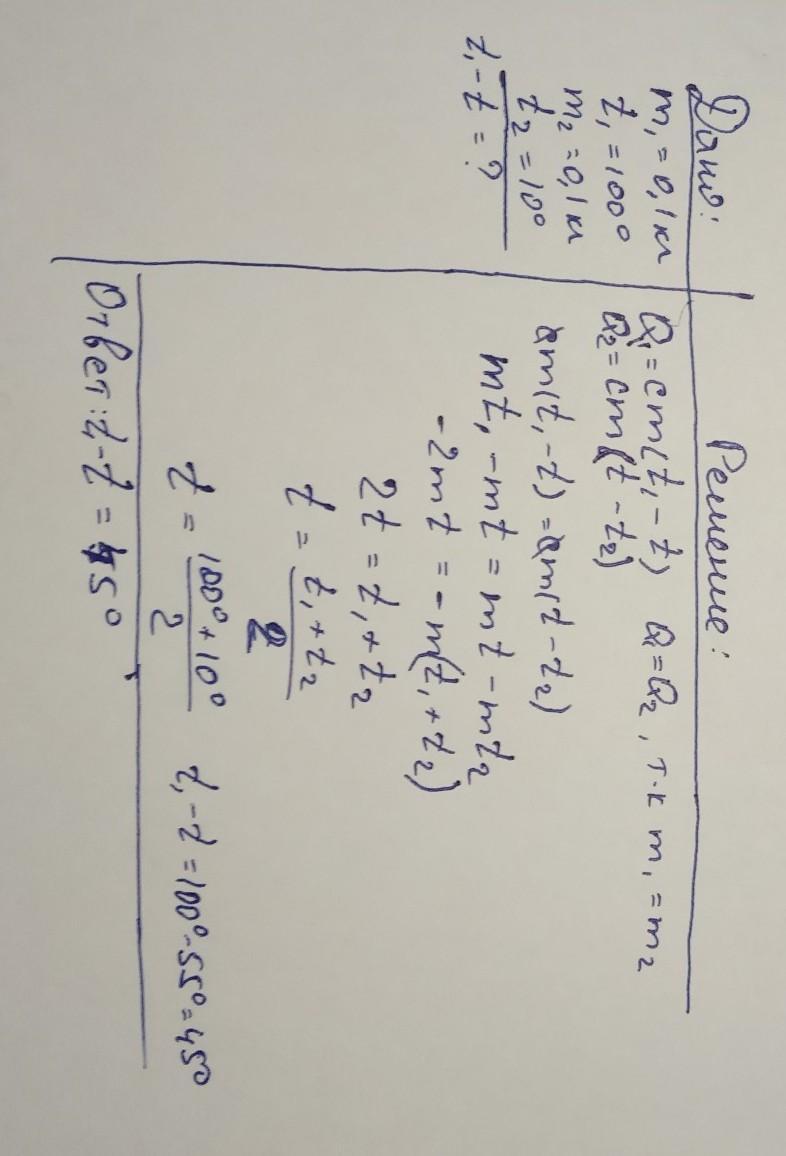 Дано:
m₁ = 0,1 кг
t₁ = 100°
m₂ = 0,1 кг
t₂ = 10°
t₁ - t = ?
Решение:
Q₁ = cm(t₁ - t) Q = Q₂, т.к m₁ = m₂
Q₂ = cm(t - t₂)
cm(t₁ - t) = cm(t - t₂)
mt₁ - mt = mt - mt₂
-2mt = -m(t₁ + t₂)
2t = t₁ + t₂
t = (t₁ + t₂)/2
t = (100° + 10°)/2 t₁ - t = 100° - 55° = 45°
Ответ: t₁ - t = 45°